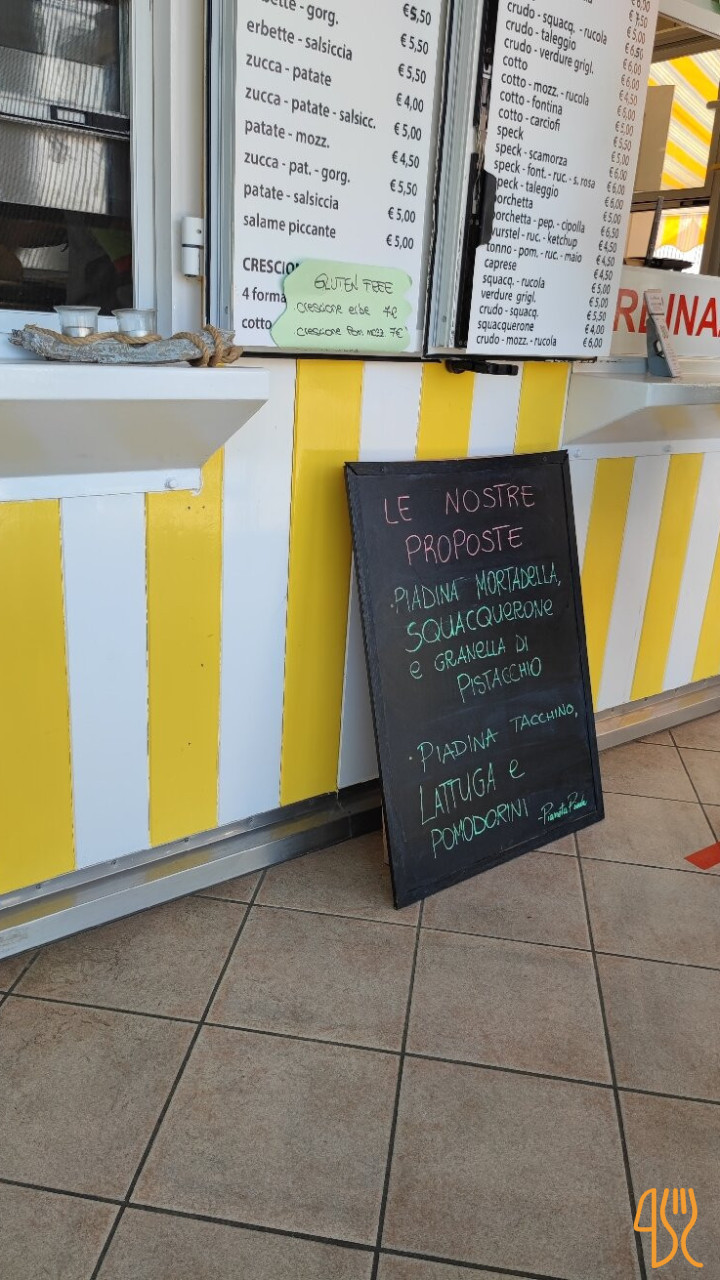 erbette - gorg. €5,50
erbette - salsiccia €5,50
zucca - patate €5,50
zucca - patate - salsicc. €4,00
patate - mozz. €5,00
zucca - pat. - gorg. €4,50
patate - salsiccia €5,50
salame piccante €5,00
€5,00
4 forma
cotto
GLUTEN FREE
crescione erbe 7€
crescione Pom mozz 7€
crudo - squacq. - rucola
crudo - taleggio
crudo - verdure grigl.
cotto
cotto - mozz. - rucola
cotto - fontina
cotto - carciofi
speck
speck - scamorza
speck - font. - ruc. - s. rosa
speck - taleggio
porchetta
porchetta - pep. - cipolla
wurstel - ruc. - ketchup
tonno - pom. - ruc. - maio
caprese
squacq. - rucola
verdure grigl.
crudo - squacq.
squacquerone
crudo - mozz. - rucola €6,00
LE NOSTRE
PROPOSTE
·PIADINA MORTADELLA,
SQUACQUERONE
e GRANELLA DI
PISTACCHIO
·PIADINA TACCHINO,
LATTUGA e
POMODORINI